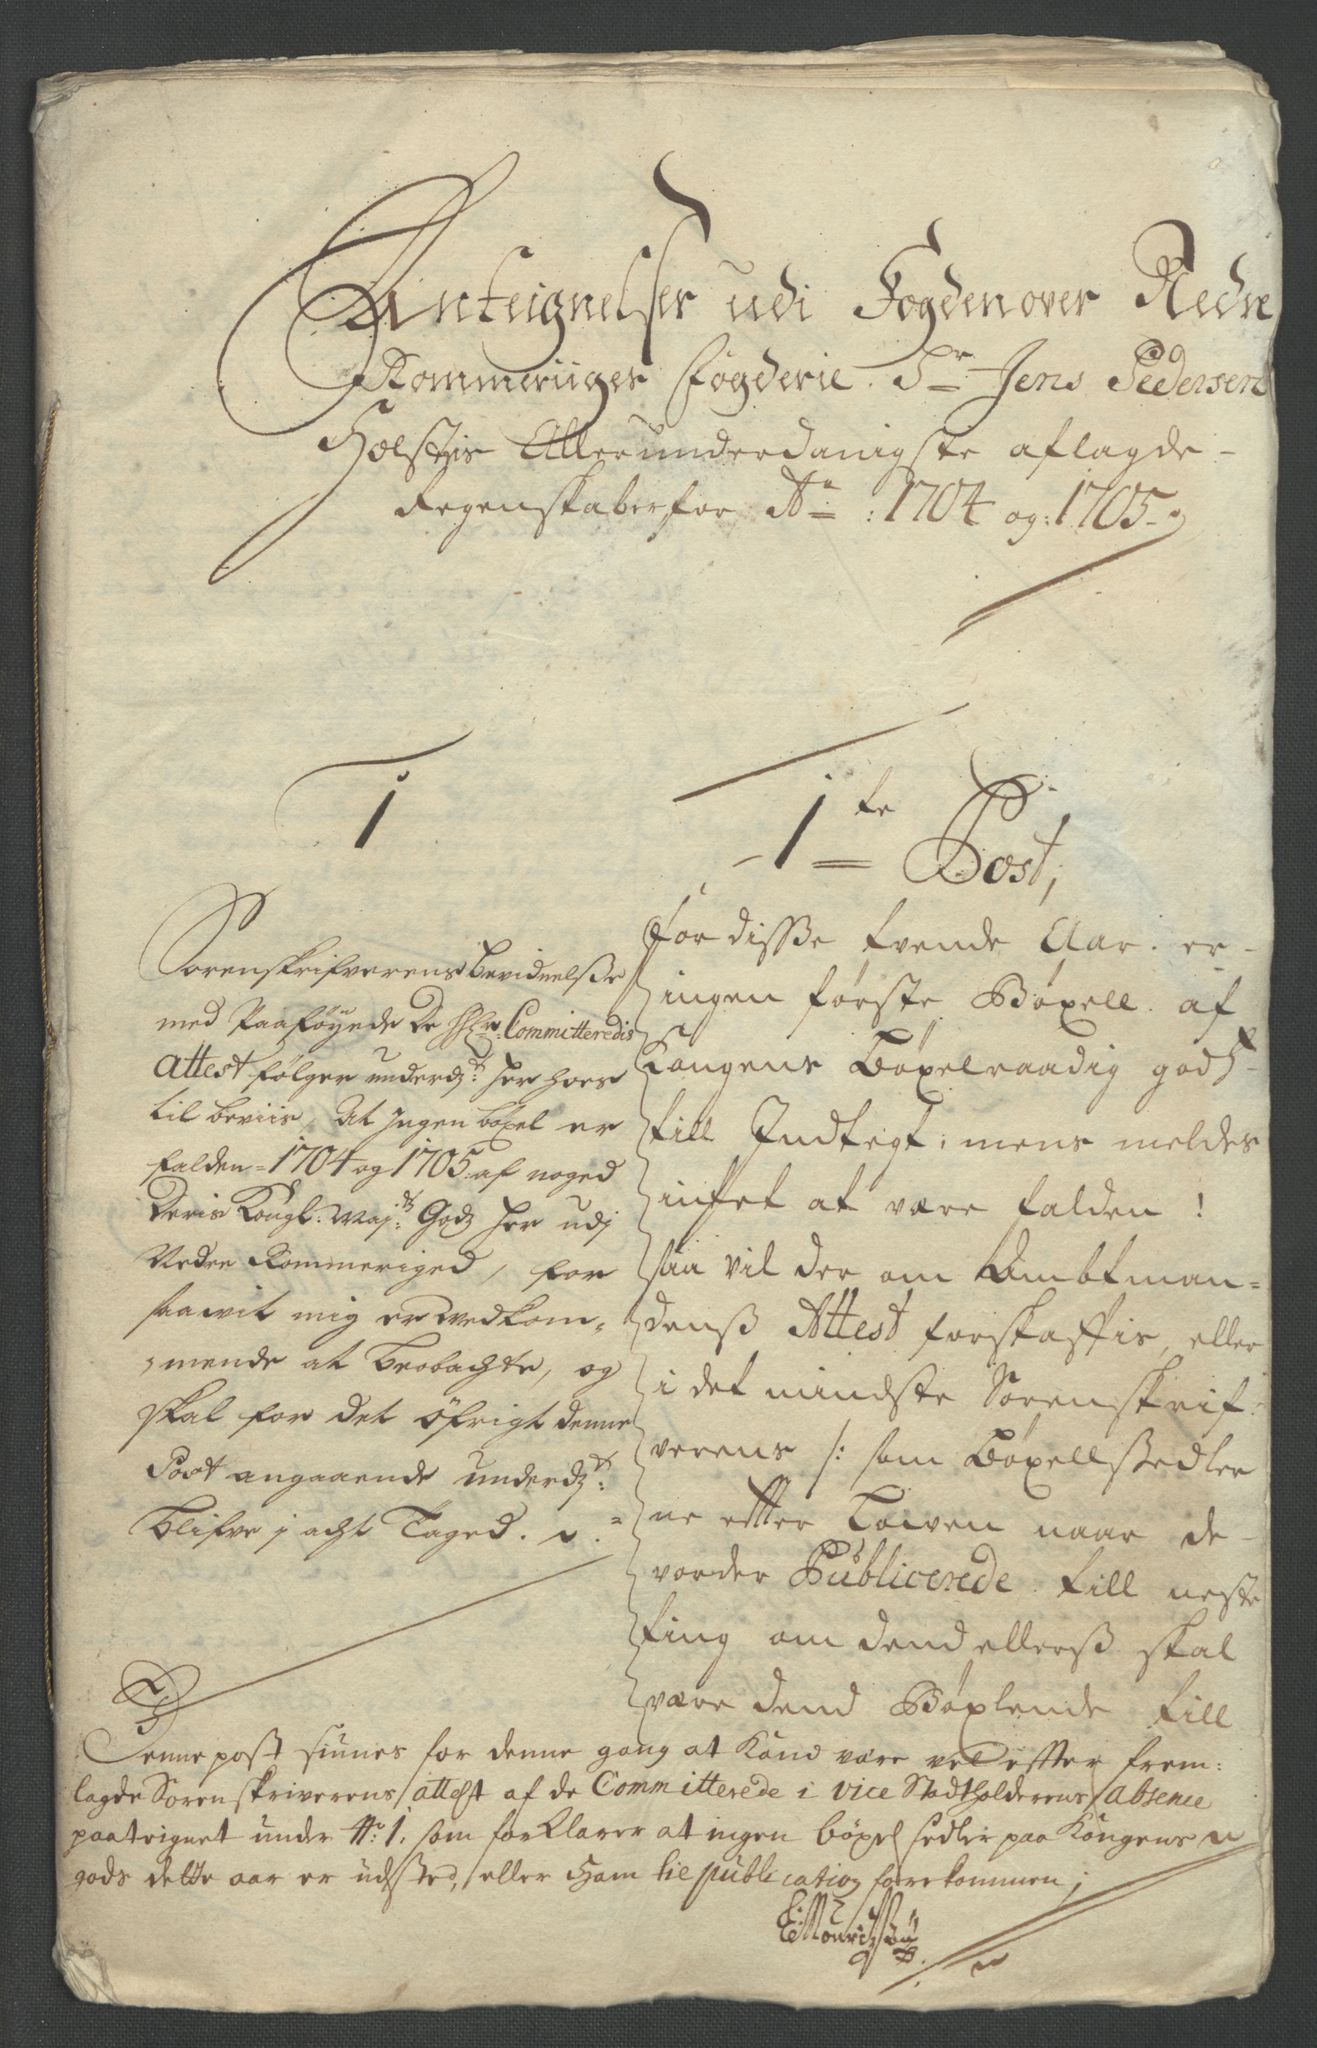 Anteignelser udi Fogden over Nedre
Rommeriiges Fogderie Sr Jens Pedersen
Holstis Allerunderdanigste aflagde
Regenskaber for Ao: 1704 og: 1705
1
Sorenskrifverens Bevidnelsse
med Paaføyede De HHr: Committeredis
attest følger underdt: her hoes
til beviis, At Ingen böxel er
falden 1704 og 1705: af noged
Deris Kongl: Majts: Godz her udj
Nedre Rommeriged, for
saawit mig er wedkom„
mende at beobachte, og
skal for det öfrigt denne
Post angaaende underdt:
blifve j acht Taged.
1te Post,
For disse tvende Aar er
ingen første Bøxell af
Kongens Bøxelraadig godtz
till Indtegt; mens meldes
intet at være falden!
saa vil der om Ambtman=
denß Attest forskaffis, eller
i det mindste Sorenskrif:
verens /: som Bøxellßedler
ne effter Lowen naar de
vorder Publicerede till neste
ting om dend ellerß skal
være dend Bøxlende till
Denne post siunes for denne gang at Kand være vel effter frem:
lagde Sorenskriverens attest af de Committerede i vice Stadtholderens Absence
paateignet under No 1. som forklarer at ingen böxel sedler paa Kongens
gods dette aar er udsted, eller ham til publication forekommen;